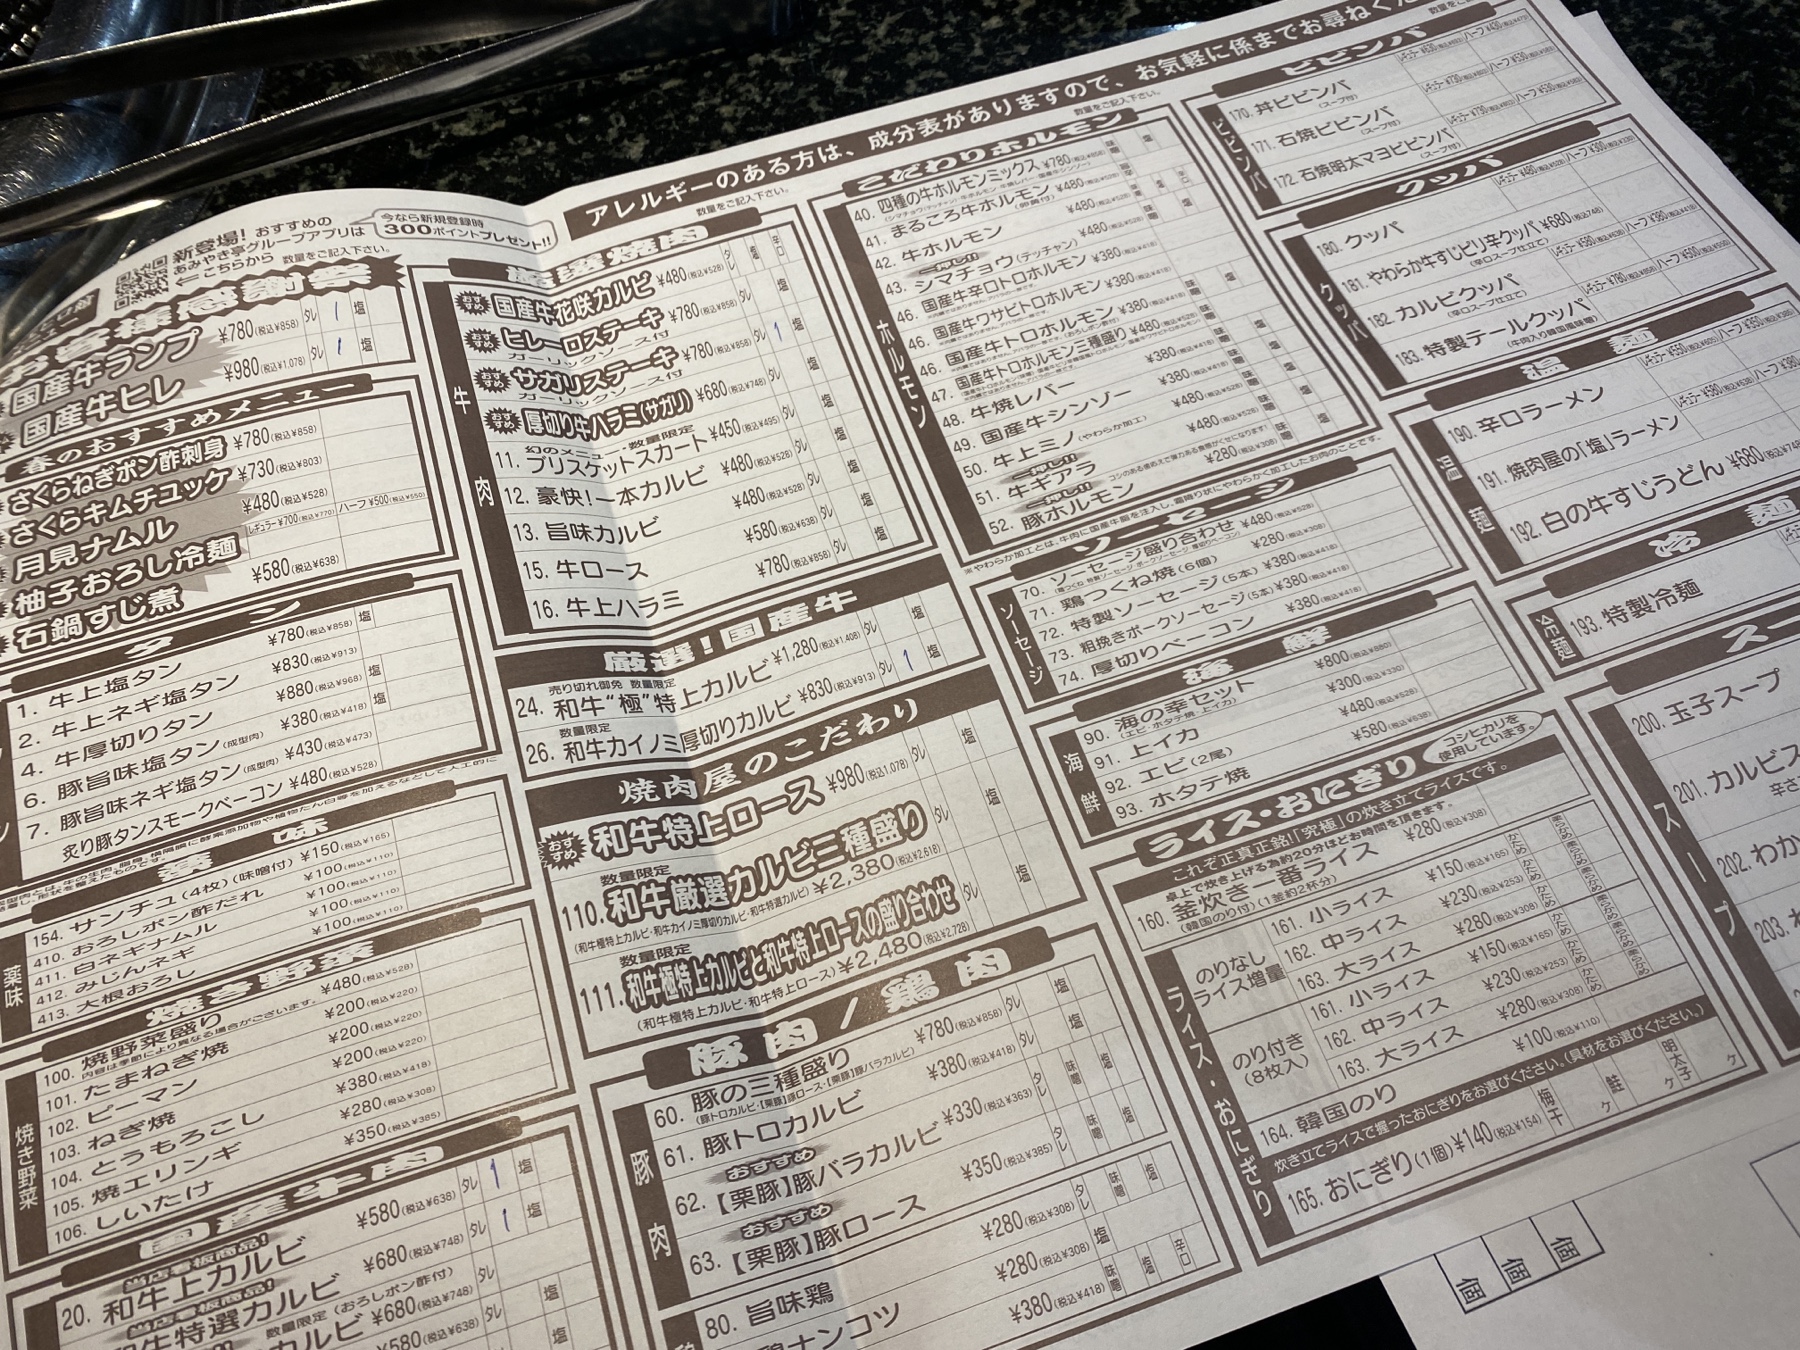 アレルギーのある方は、成分表がありますので、お気軽に係までお尋ねくだ
新登場! おすすめの
あみやき亭グループアプリは
←こちらから
今なら新規登録時
300ポイントプレゼント!!
数量をご記入下さい。
お客様感謝祭
国産牛ランプ ¥780(税込¥858) タレ 1 塩
国産牛ヒレ ¥980(税込¥1,078) タレ 1 塩
春のおすすめメニュー
さくらねぎポン酢刺身 ¥780(税込¥858)
さくらキムチユッケ ¥730(税込¥803)
月見ナムル ¥480(税込¥528)
柚子おろし冷麺 レギュラー¥700(税込¥770) ハーフ¥500(税込¥550)
石鍋すじ煮 ¥580(税込¥638)
タン
1. 牛上塩タン ¥780(税込¥858) 塩
2. 牛上ネギ塩タン ¥830(税込¥913)
4. 牛厚切りタン ¥880(税込¥968) 塩
6. 豚旨味塩タン(成型肉) ¥380(税込¥418) 塩
7. 豚旨味ネギ塩タン(成型肉) ¥430(税込¥473)
炙り豚タンスモークベーコン ¥480(税込¥528)
薬味
154. サンチュ(4枚)(味噌付) ¥150(税込¥165)
410. おろしポン酢だれ ¥100(税込¥110)
411. 白ネギナムル ¥100(税込¥110)
412. みじんネギ ¥100(税込¥110)
413. 大根おろし ¥100(税込¥110)
薬味
焼き野菜
100. 焼野菜盛り ¥480(税込¥528)
内容は季節により異なる場合がございます。
101. たまねぎ焼 ¥200(税込¥220)
102. ピーマン ¥200(税込¥220)
103. ねぎ焼 ¥200(税込¥220)
104. とうもろこし ¥380(税込¥418)
105. 焼エリンギ ¥280(税込¥308)
106. しいたけ ¥350(税込¥385)
焼き野菜
国産牛肉
当店看板商品!
20. 和牛上カルビ ¥580(税込¥638) タレ 1 塩
当店看板商品!
牛特選カルビ ¥680(税込¥748) タレ 1 塩
数量限定 (おろしポン酢付)
カルビ ¥680(税込¥748) タレ 塩
¥580(税込¥638)
数量をご記入下さい。
厳選焼肉
牛肉
おすすめ 国産牛花咲カルビ ¥480(税込¥528) タレ 塩 辛口
おすすめ ヒレ一口ステーキ ¥780(税込¥858)
ガーリックソース付
おすすめ サガリステーキ ¥780(税込¥858)
ガーリックソース付
おすすめ 厚切り牛ハラミ(サガリ) ¥680(税込¥748) タレ 1 塩
幻のメニュー・数量限定
11. ブリスケットスカート ¥450(税込¥495) タレ 塩
12. 豪快!一本カルビ ¥480(税込¥528) タレ 塩
13. 旨味カルビ ¥480(税込¥528) タレ 塩
15. 牛ロース ¥580(税込¥638) タレ 塩
16. 牛上ハラミ ¥780(税込¥858) タレ 塩
厳選!国産牛
売り切れ御免 数量限定
24. 和牛“極”特上カルビ ¥1,280(税込¥1,408) タレ 塩
数量限定
26. 和牛カイノミ厚切りカルビ ¥830(税込¥913) タレ 1 塩
焼肉屋のこだわり
おすすめ 和牛特上ロース ¥980(税込1,078) タレ 塩
数量限定
110. 和牛厳選カルビ三種盛り ¥2,380(税込¥2,618) タレ 塩
(和牛極特上カルビ・和牛カイノミ厚切りカルビ・和牛特選カルビ)
数量限定
111. 和牛極特上カルビと和牛特上ロースの盛り合わせ タレ 塩
(和牛極特上カルビ・和牛特上ロース) ¥2,480(税込¥2,728)
豚肉/鶏肉
豚肉
60. 豚の三種盛り ¥780(税込¥858) タレ 塩
(豚トロカルビ・【栗豚】豚ロース・【栗豚】豚バラカルビ)
61. 豚トロカルビ ¥380(税込¥418) タレ 味噌 塩
おすすめ
62. 【栗豚】豚バラカルビ ¥330(税込¥363) タレ 味噌 塩
おすすめ
63. 【栗豚】豚ロース ¥350(税込¥385) タレ 味噌 塩
80. 旨味鶏 ¥280(税込¥308) タレ 味噌 塩
鶏ナンコツ ¥280(税込¥308) 塩
¥380(税込¥418) タレ 味噌 塩 辛口
数量をご記入下さい。
こだわりホルモン
ホルモン
40. 四種の牛ホルモンミックス ¥780(税込¥858) 味噌 塩
41. まるころ牛ホルモン ¥480(税込¥528)
42. 牛ホルモン ¥480(税込¥528)
一押し!!
43. シマチョウ(テッチャン) ¥480(税込¥528)
46. 国産牛辛口トロホルモン ¥380(税込¥418)
46. 国産牛ワサビトロホルモン ¥380(税込¥418)
46. 国産牛トロホルモン ¥380(税込¥418) 味噌 塩
47. 国産牛トロホルモン三種盛り ¥480(税込¥528)
48. 牛焼レバー ¥380(税込¥418)
49. 国産牛シンゾー ¥380(税込¥418)
50. 牛上ミノ(やわらか加工) ¥480(税込¥528)
一押し!!
51. 牛ギアラ ¥480(税込¥528)
一押し!! コシのある歯応えで弾力ある食感がくせになります!
52. 豚ホルモン ¥280(税込¥308) 味噌 塩
※やわらか加工とは、牛肉に国産牛脂を注入し、霜降り状にやわらかく加工したお肉のことです。
ソーセージ
ソーセージ
70. ソーセージ盛り合わせ ¥480(税込¥528)
71. 鶏つくね焼(6個) ¥280(税込¥308)
72. 特製ソーセージ(5本) ¥380(税込¥418)
73. 粗挽きポークソーセージ(5本) ¥380(税込¥418)
74. 厚切りベーコン ¥380(税込¥418)
海鮮
海鮮
90. 海の幸セット ¥800(税込¥880)
(エビ・ホタテ焼・上イカ)
91. 上イカ ¥300(税込¥330)
92. エビ(2尾) ¥480(税込¥528)
93. ホタテ焼 ¥580(税込¥638)
ライス・おにぎり
コシヒカリを
使用しています。
これぞ正真正銘!「究極」の炊き立てライスです。
卓上で炊き上げる為約20分ほどお時間を頂きます。
160. 釜炊き一番ライス ¥280(税込¥308)
(韓国のり付)(1釜約2杯分)
のりなし
ライス増量
161. 小ライス ¥150(税込¥165) かため
162. 中ライス ¥230(税込¥253) かため
163. 大ライス ¥280(税込¥308) かため
のり付き
(8枚入)
161. 小ライス ¥150(税込¥165) かため
162. 中ライス ¥230(税込¥253) かため
163. 大ライス ¥280(税込¥308) かため
164. 韓国のり ¥100(税込¥110)
炊き立てライスで握ったおにぎりをお選びください。(具材をお選びください。)
165. おにぎり(1個) ¥140(税込¥154) 梅干 ケ 鮭 ケ 明太子 ケ
ライス・おにぎり
数量をご
ビビンバ
ビビンバ
170. 丼ビビンバ
(スープ付)
171. 石焼ビビンバ
(スープ付)
172. 石焼明太マヨビビンバ
(スープ付)
クッパ
クッパ
180. クッパ
181. やわらか牛すじピリ辛クッパ ¥680(税込¥748)
(辛口スープ仕立て)
182. カルビクッパ
(辛口スープ仕立て)
183. 特製テールクッパ
(牛肉入り韓国風味噌)
温麺
温麺
190. 辛口ラーメン レギュラー¥550(税込¥605)
191. 焼肉屋の「塩」ラーメン レギュラー¥580(税込¥638)
192. 白の牛すじうどん ¥680(税込¥748
冷麺
冷麺
193. 特製冷麺
スー
スープ
200. 玉子スープ
201. カルビス
辛さ
202. わか
203.
個 個 個